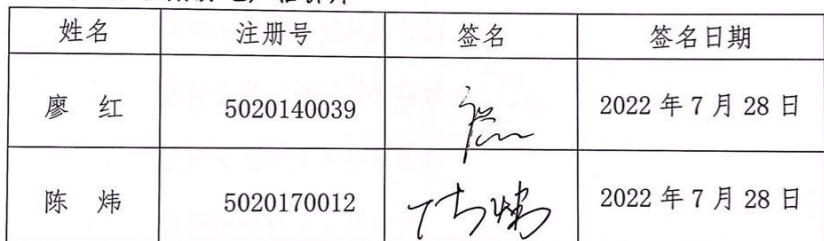 姓名 注册号 签名 签名日期
廖 红 5020140039 2022 年 7 月 28 日
陈 炜 5020170012 陈炜 2022 年 7 月 28 日